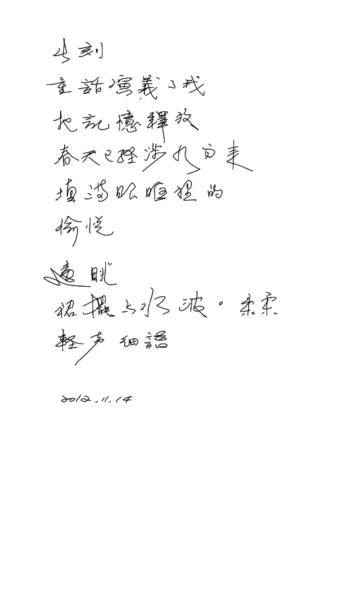 此刻
童話演義了我
把記憶釋放
春天已經涉水而來
填滿眼眶裡的
愉悅
遠眺
招擺與水波。柔柔
輕声細語
2012.11.14